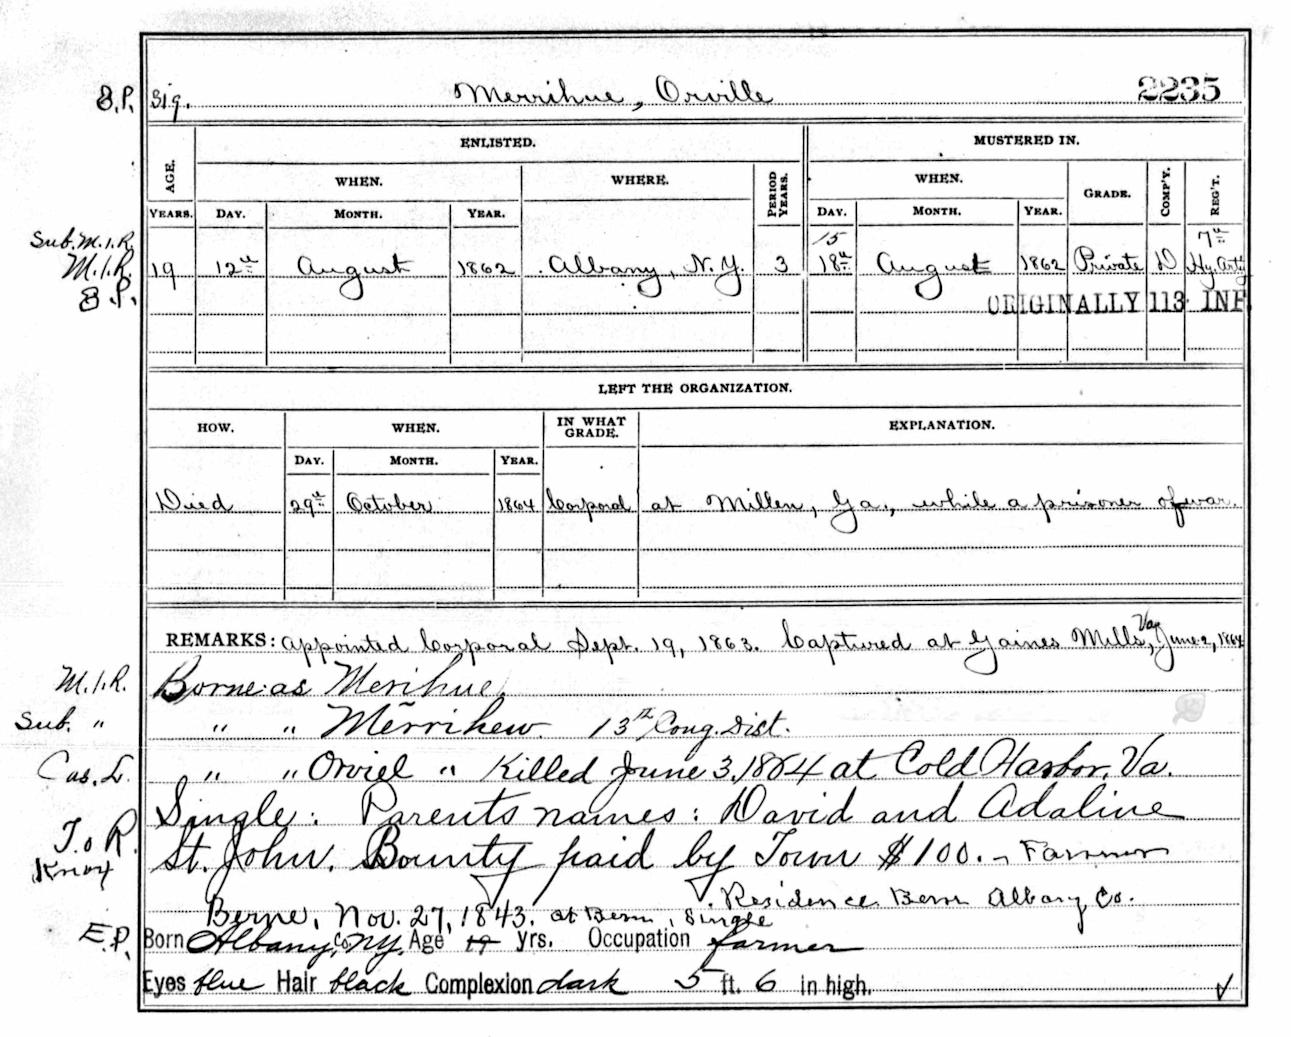 S.P. Sig. Merrihue, Orville 2235
ENLISTED. MUSTERED IN.
AGE. WHEN. WHERE. PERIOD YEARS. WHEN. GRADE. COMP'Y. REG'T.
YEARS. DAY. MONTH. YEAR. DAY. MONTH. YEAR.
Sub. M.I.R. 15 7th
M.I.R. 19 12th August 1862 Albany, N.Y. 3 18th August 1862 Private D Hy. Arty
S.P. ORIGINALLY 113 INF
LEFT THE ORGANIZATION.
HOW. WHEN. IN WHAT GRADE. EXPLANATION.
DAY. MONTH. YEAR.
Died 29th October 1864 Corporal at Millen, Ga., while a prisoner of war.
REMARKS: Appointed Corporal Sept. 19, 1863. Captured at Gaines Mills, Va, June 2, 1864
M.I.R. Borne as Merihue,
Sub. " " " Merrihew. 13th Cong. Dist.
Cas. L. " " Orviel " Killed June 3, 1864 at Cold Harbor, Va.
Single: Parents names: David and Adaline
T.o R. St. John. Bounty paid by Town $100. - Farmer
Knox
Residence Bern Albany Co.
Berne, Nov. 27, 1843. at Bern, Single
E.P. Born Albany Co NY. Age 19 yrs. Occupation farmer
Eyes blue Hair black Complexion dark 5 ft. 6 in high.